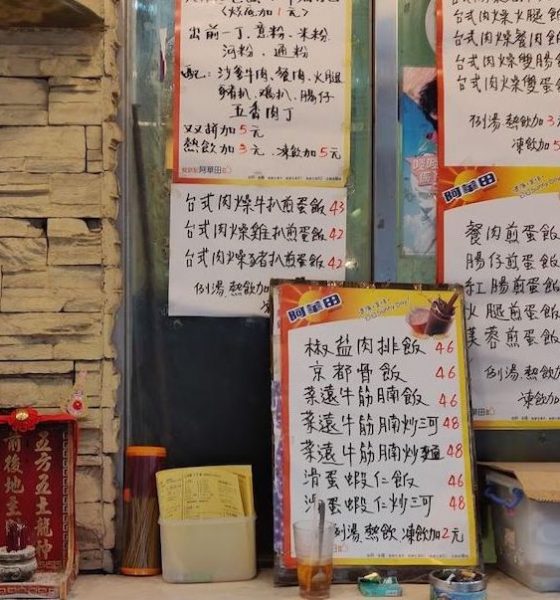 (炆底加1元)
出前一丁、意粉、米粉
河粉、通粉
配: 沙爹牛肉、餐肉、火腿
豬扒、鸡扒、腸仔
五香肉丁
双拼加5元
熱飲加3元、凍飲加5元
阿華田
台式肉燥牛扒煎蛋飯 43
台式肉燥雞扒煎蛋飯 42
台式肉燥豬扒煎蛋飯 42
例湯、熱飲加
阿華田
椒盐肉排飯 46
京都骨飯 46
菜遠牛筋腩飯 46
菜遠牛筋腩炒河 48
菜遠牛筋腩炒麵 48
滑蛋蝦仁飯 46
滑蛋蝦仁炒河 48
例湯、熱飲 凍飲加2元
台式肉燥火腿飯
台式肉燥餐肉飯
台式肉燥雙腸飯
台式肉燥雙蛋飯
例湯、熱飲加3
凍飲加5
阿華田
餐肉煎蛋飯
腸仔煎蛋飯
紅腸煎蛋飯
火腿煎蛋飯
芙蓉煎蛋飯
例湯、熱飲加
凍飲加
五方五土龍神
前後地主